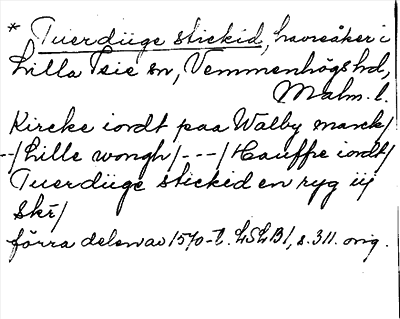 * Tuerdüge stickid, havreåker i
Lilla Isie sn, Vemmenhögs hd,
Malm. l.
Kircke iordt paa Walby marck/
--/Lille wongh/---/Hauffre iordt/
Tuerdüge stickid en ryg iij
Skr/
förra delen av 1570-t. LSLB1, s. 311. orig.